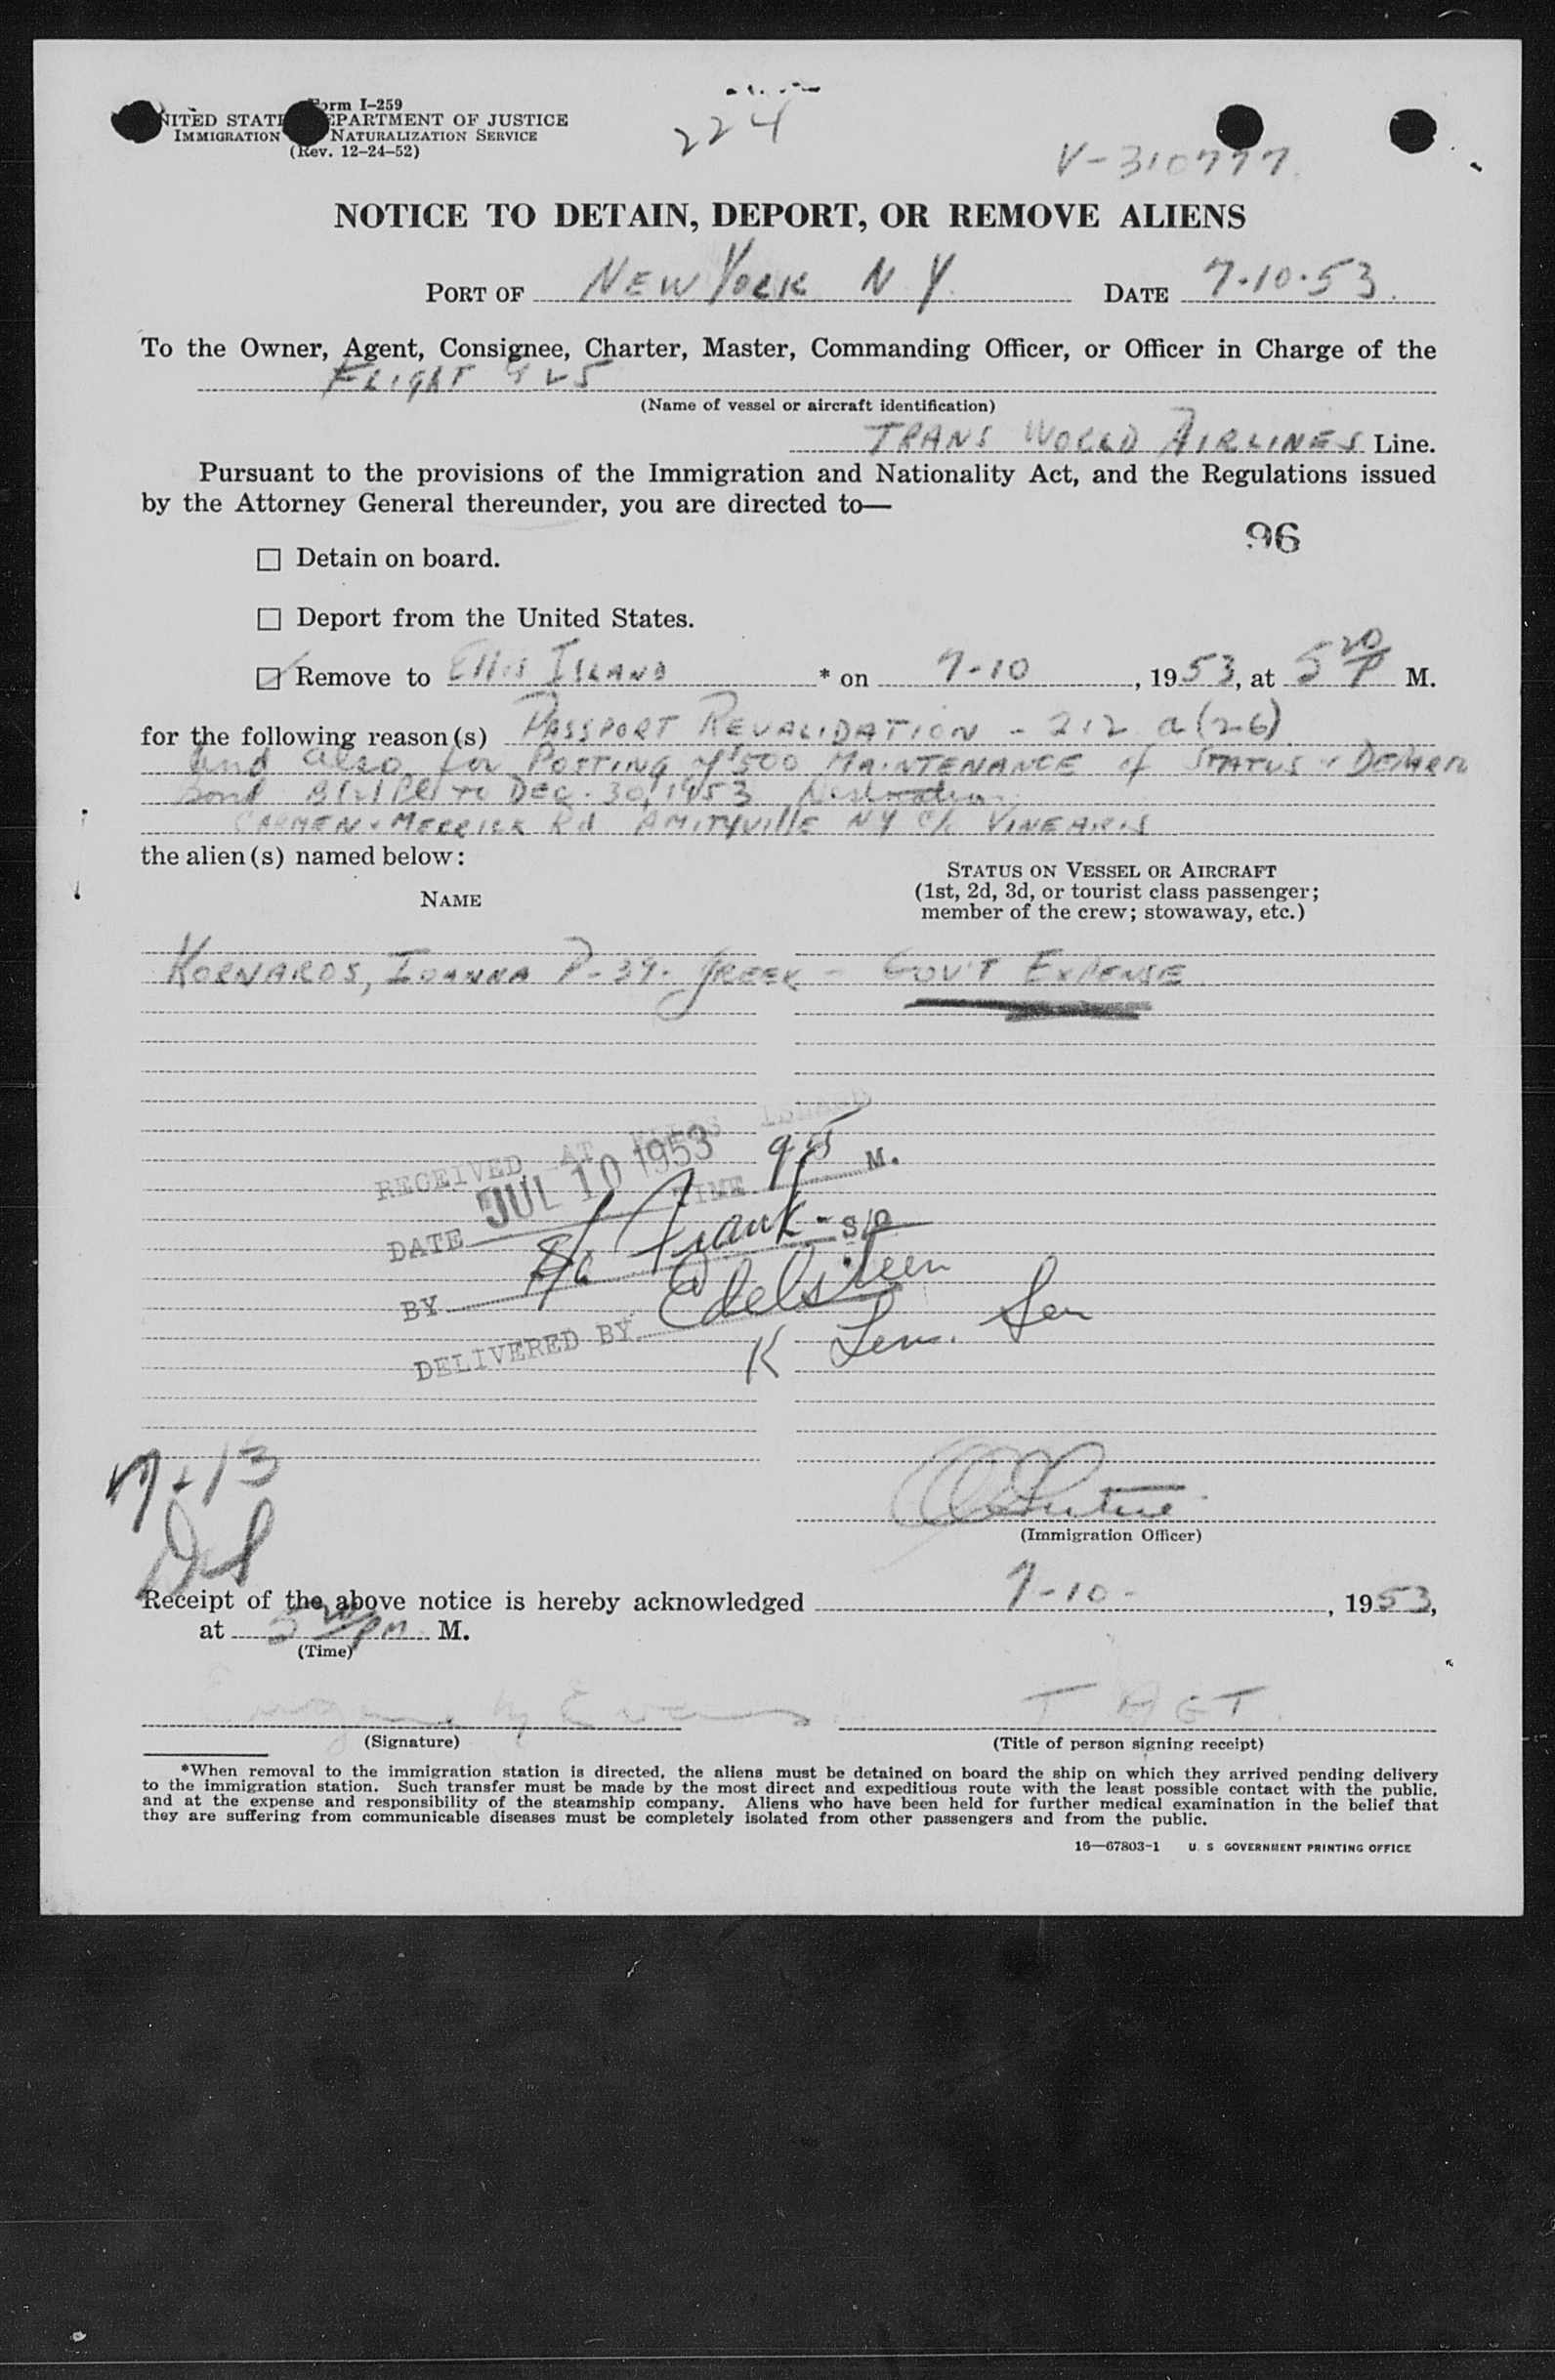 Form I-259
UNITED STATES DEPARTMENT OF JUSTICE
IMMIGRATION NATURALIZATION SERVICE
(Rev. 12-24-52)
224
V-310777
NOTICE TO DETAIN, DEPORT, OR REMOVE ALIENS
PORT OF NEW YORK N Y. DATE 7-10-53
To the Owner, Agent, Consignee, Charter, Master, Commanding Officer, or Officer in Charge of the
FLIGHT 925
(Name of vessel or aircraft identification)
TRANS WORLD AIRLINES Line.
Pursuant to the provisions of the Immigration and Nationality Act, and the Regulations issued
by the Attorney General thereunder, you are directed to—
96
☐ Detain on board.
☐ Deport from the United States.
☑ Remove to Ellis ISLAND * on 7-10, 1953, at 5 20 P M.
for the following reason(s) PASSPORT REVALIDATION - 212 a (26)
and also for POSTING of $500 MAINTENANCE of STATUS & DEPARTR
Bond DEC. 30, 1953
CARMEN & MERRICK Rd AMITYVILLE NY C/o VINEARIS
the alien(s) named below:
NAME
STATUS ON VESSEL OR AIRCRAFT
(1st, 2d, 3d, or tourist class passenger;
member of the crew; stowaway, etc.)
KORNAROS, IOANNA P-39- GREEK - GOV'T EXPENSE
RECEIVED AT ELLIS ISLAND
DATE JUL 10 1953 TIME 955 M.
BY Frank -
DELIVERED BY Edelsteen
K
7-13
(Immigration Officer)
Receipt of the above notice is hereby acknowledged 7-10-, 1953,
at 5 20 PM M.
(Time)
Eugene Evans T AGT.
(Signature) (Title of person signing receipt)
*When removal to the immigration station is directed, the aliens must be detained on board the ship on which they arrived pending delivery
to the immigration station. Such transfer must be made by the most direct and expeditious route with the least possible contact with the public,
and at the expense and responsibility of the steamship company. Aliens who have been held for further medical examination in the belief that
they are suffering from communicable diseases must be completely isolated from other passengers and from the public.
16—67803-1 U. S GOVERNMENT PRINTING OFFICE